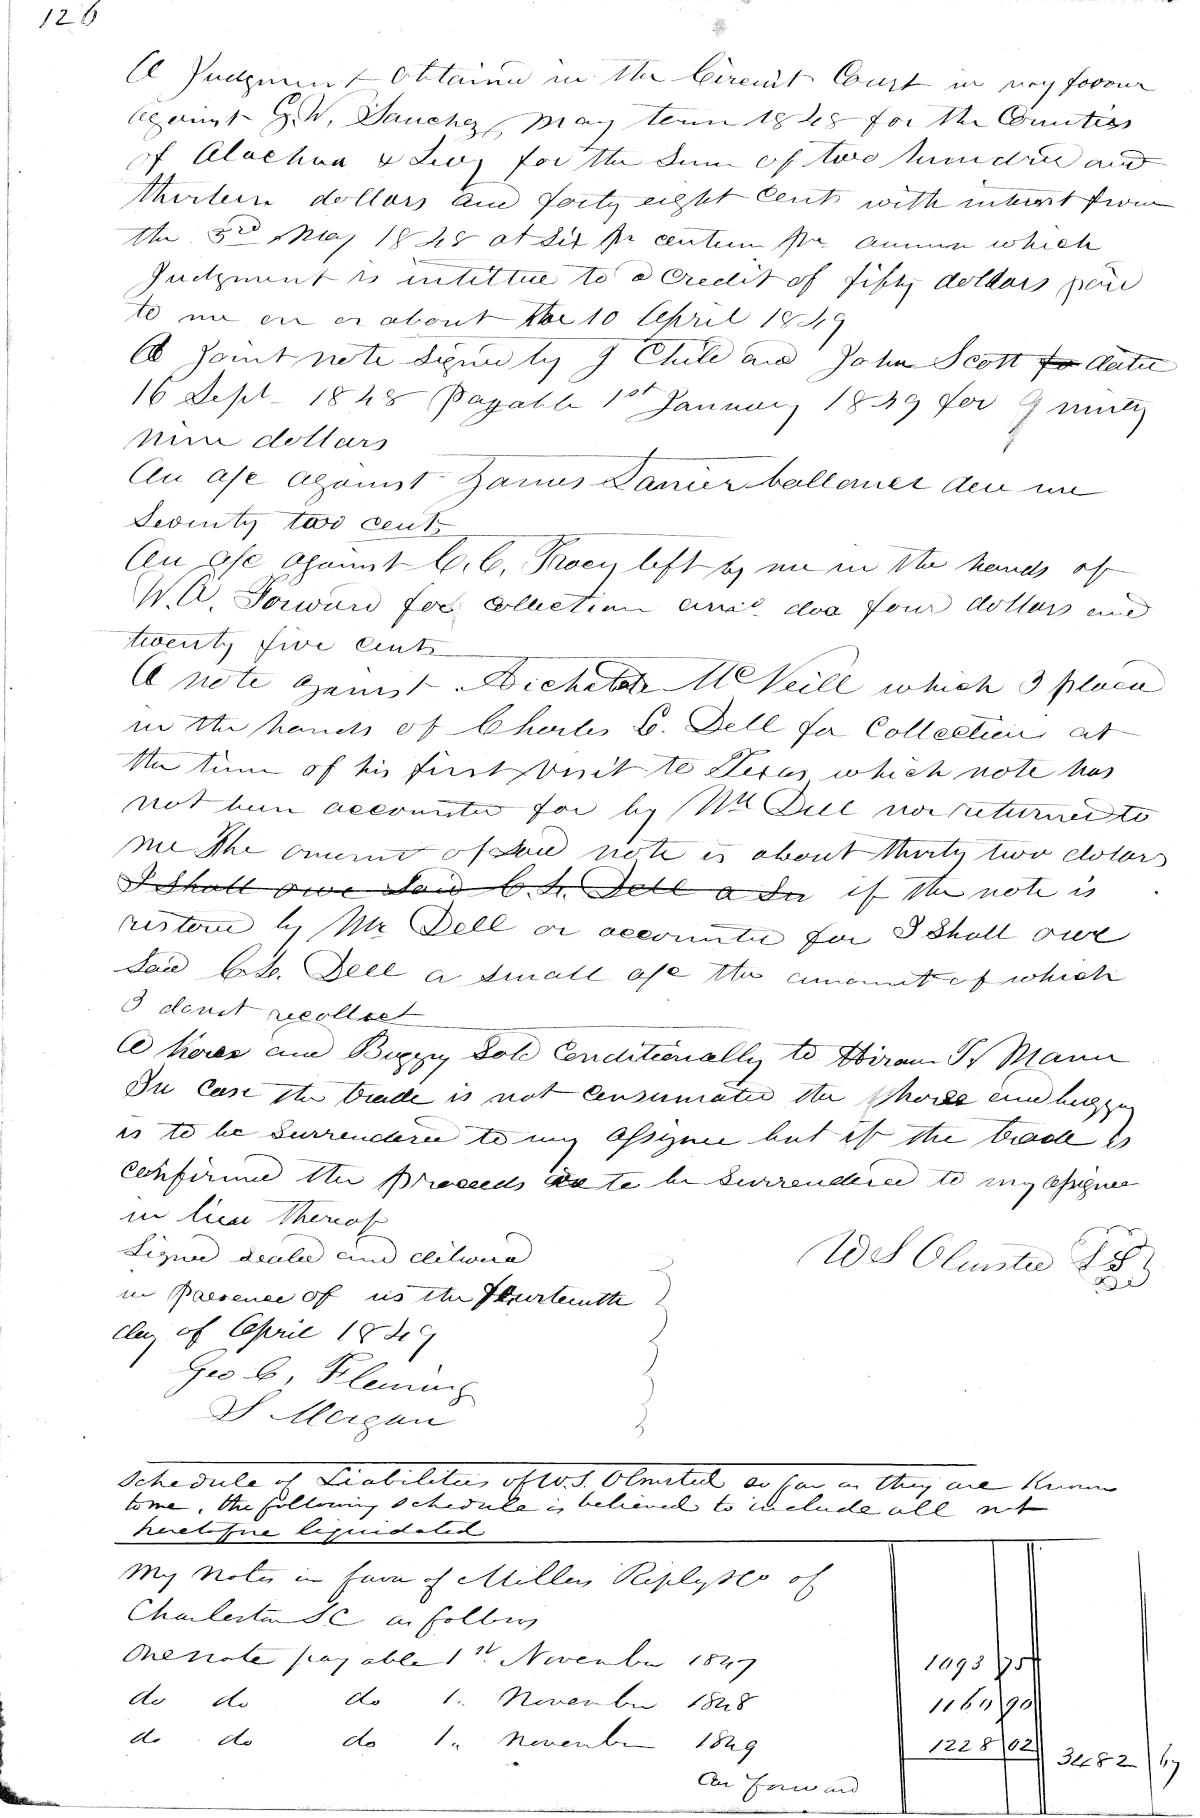 126
A Judgment obtained in the Circuit Court in my favour
against G.W. Sanchez, May term 1848 for the Counties
of Alachua & Levy for the Sum of two hundred and
thirteen dollars and forty eight Cents with interest from
the 3rd May 1848 at Six pr centum pr annum which
Judgment is intittue to a Credit of fifty dollars paid
to me on or about the 10 April 1849
A Joint note Signed by J Chile and John Scott fo dated
16 Sept 1848 Payable 1st January 1849 for ninty
nine dollars
An a/c against James Lanier ballance due me
Seventy two cents
An a/c against C.C. Tracy left by me in the hands of
W.A. Forward for collection four dollars and
twenty five cents
A note against McNeill which I placed
in the hands of Charles L. Dell for Collection at
the time of his first visit to Texas which note has
not been accounted for by Mr Dell nor returned to
me The amount of said note is about thirty two dolars
I Shall owe Said C.L. Dell a Sm if the note is
restored by Mr Dell or accounted for I Shall owe
Said C.L. Dell a small a/c the amount of which
I donst recollect
A horse and Buggy Sold Conditionally to Hiram T. Mann
In Case the trade is not Consumated the horse and buggy
is to be Surrendered to my assignee but if the trade is
confirmed the proceeds is to be Surrendered to my assignee
in lieu thereof
Signed sealed and delivered
in Presence of us the fourteenth
day of April 1849
W S Olmsted L S
Geo C, Fleming
S Morgan
Schedule of Liabilities of W.S. Olmsted so far as they are Known
to me, the following schedule is believed to include all not
heretofore liquidated
My Notes in favor of Millers Riply & Co of
Charleston S.C as follows
One note payable 1st November 1847 1093 75
do do do 1.. November 1848 1160 90
do do do 1.. November 1849 1228 02 3482 67
Car Forward